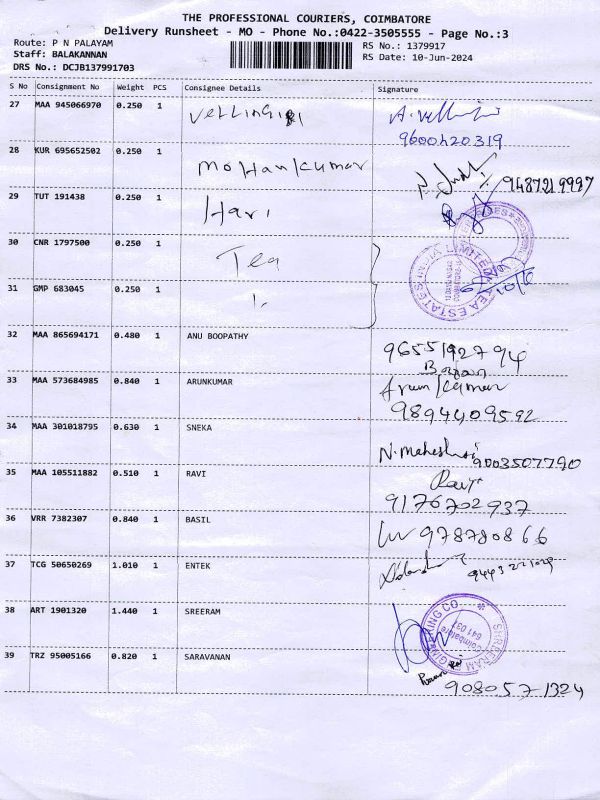 THE PROFESSIONAL COURIERS, COIMBATORE
Delivery Runsheet - MO - Phone No.:0422-3505555 - Page No.:3
Route: P N PALAYAM
Staff: BALAKANNAN
DRS No.: DCJB137991703
RS No.: 1379917
RS Date: 10-Jun-2024
S No Consignment No Weight PCS Consignee Details Signature
27 MAA 945066970 0.250 1 Vellingiri
9600420319
28 KUR 695652502 0.250 1 Mohankumar
9487219997
29 TUT 191438 0.250 1 Hari
30 CNR 1797500 0.250 1 Tea
31 GMP 683045 0.250 1
TEA ESTATES INDIA LIMITED
32 MAA 865694171 0.480 1 ANU BOOPATHY 9655192794
33 MAA 573684985 0.840 1 ARUNKUMAR Arun Kumar
9894409592
34 MAA 301018795 0.630 1 SNEKA N. Maheshwari 9003507790
35 MAA 105511882 0.510 1 RAVI Ravi
9176702937
36 VRR 7382307 0.840 1 BASIL 978780866
37 TCG 50650269 1.010 1 ENTEK
38 ART 1901320 1.440 1 SREERAM
SHRI SREERAM ENGINEERING CO.
Coimbatore
641 037
39 TRZ 95005166 0.820 1 SARAVANAN
9080571324